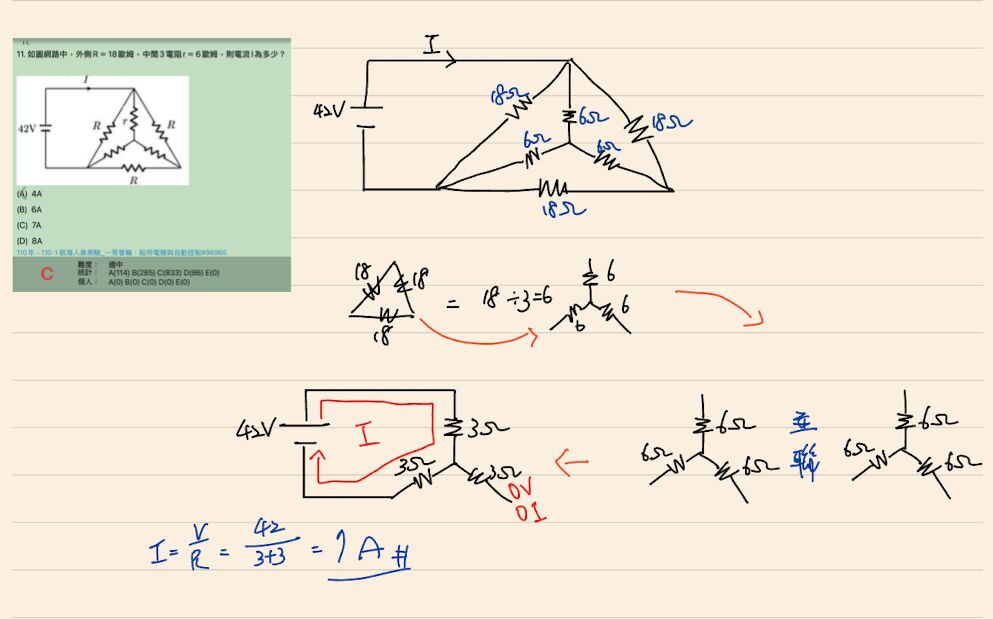 11.
11. 如圖網路中，外側R = 18歐姆，中間3電阻r = 6歐姆，則電流I為多少？
I
42V
R
r
R
R
(A) 4A
(B) 6A
(C) 7A
(D) 8A
110年 - 110-1 航海人員測驗_一等管輪：船用電機與自動控制#96965
C
難度： 適中
統計： A(114) B(285) C(833) D(86) E(0)
個人： A(0) B(0) C(0) D(0) E(0)
I
42V
18Ω
6Ω
18Ω
6Ω
6Ω
18Ω
18
18
18
= 18 ÷3=6
6
6
6
42V
I
3Ω
3Ω
3Ω
0V
0I
6Ω
6Ω
6Ω
並聯
6Ω
6Ω
6Ω
I = V/R = 42/3+3 = 7A #